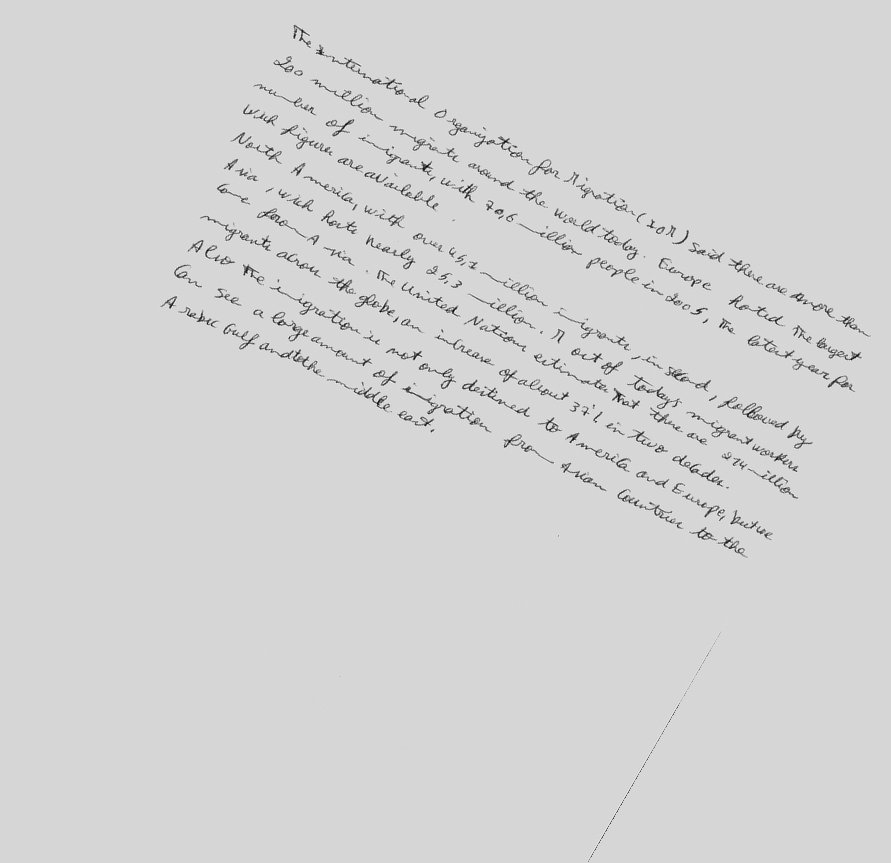 The International Organization for Migration (IOM) said there are more than
200 million migrants around the world today. Europe hosted the largest
number of imigrants, with 70,6 million people in 2005, The latest year for
wich figures are available.
North America, with over 45,1 million imigrants, in second, followed by
Asia, wich hosts nearly 25,3 million. M out of todays migrant workers
come from Asia. The United Nations estimates that there are 214 million
migrants across the globe, an increase of about 37% in two decades.
Also The imigration is not only destined to America and Europe, but we
can see a large amount of imigration from Asian Countries to the
Arabic Gulf and to the middle east.